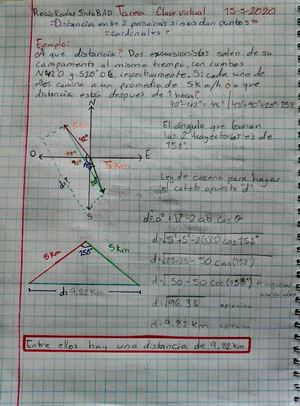 Rocio Rodas 5nto BAD Tarea Clase virtual 15-5-2020
=Distancia entre 2 personas si nos dan puntos=
=cardinales=
Ejemplo:
¿A que distancia? Dos excursionistas salen de su
campamento al mismo tiempo, con rumbos
N42°O y S20°E, respectivamente. Si cada uno de
ellos camina a un promedio de 5K m/h ¿a que
distancia están después de 1 hora?
90°-42°=48° | 48+90+20=158
N
5Km
42°
El ángulo que forman
las 2 trayectorias es de
158°.
O
48°
90°
158°
E
5Km
20°
d
S
Ley de coseno para hayar
el cateto opuesto "d"
d²=a²+b²-2ab cos θ
d=√5²+5²-2(5)(5)cos 158°
d=√25+25-50cos(158°)
d=√50-50 cos(158°)
d=√96.36
d=9.82 Km
5Km
158°
5Km
d=9.82Km
Entre ellos hay una distancia de 9.82 km